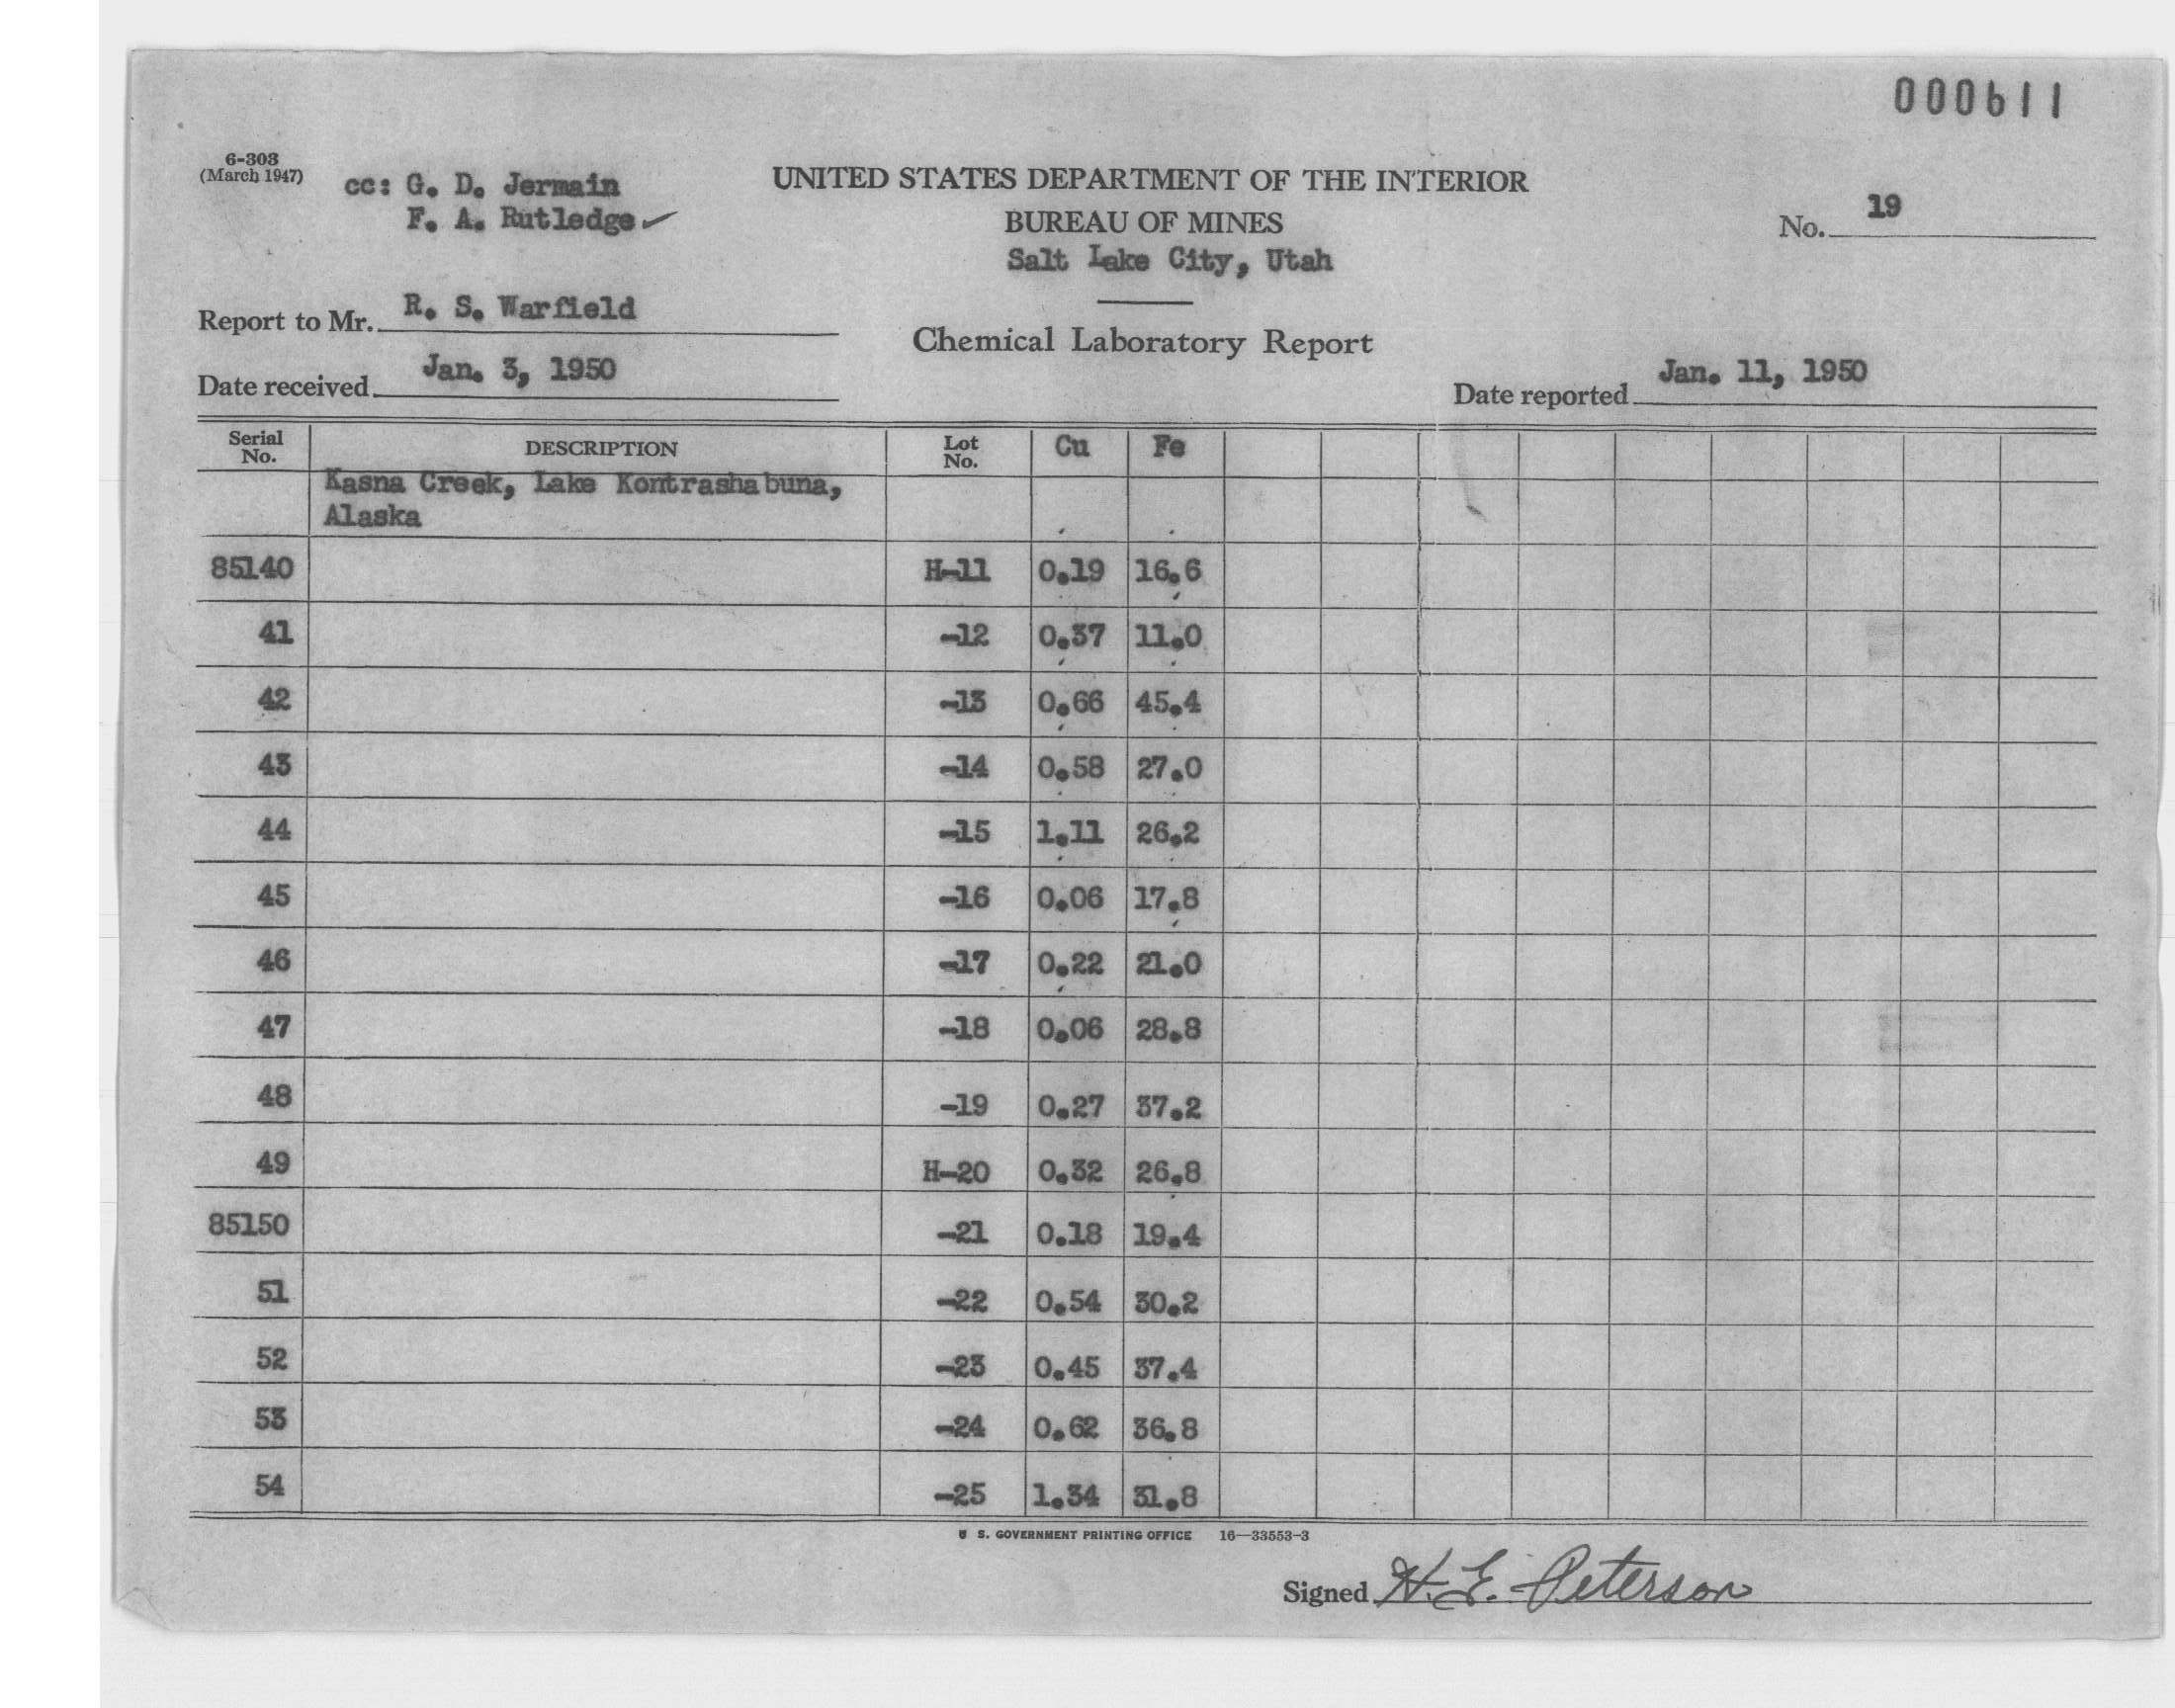 000611
6-303
(March 1947)
cc: G. D. Jermain
F. A. Rutledge
UNITED STATES DEPARTMENT OF THE INTERIOR
BUREAU OF MINES
Salt Lake City, Utah
No. 19
Report to Mr. R. S. Warfield
Chemical Laboratory Report
Date received Jan. 3, 1950
Date reported Jan. 11, 1950
Serial No. DESCRIPTION Lot No. Cu Fe
Kasna Creek, Lake Kontrashabuna,
Alaska
85140 H-11 0.19 16.6
41 -12 0.37 11.0
42 -13 0.66 45.4
43 -14 0.58 27.0
44 -15 1.11 26.2
45 -16 0.06 17.8
46 -17 0.22 21.0
47 -18 0.06 28.8
48 -19 0.27 37.2
49 H-20 0.32 26.8
85150 -21 0.18 19.4
51 -22 0.54 30.2
52 -23 0.45 37.4
53 -24 0.62 36.8
54 -25 1.34 31.8
U S. GOVERNMENT PRINTING OFFICE 16—33553-3
Signed H. E. Peterson